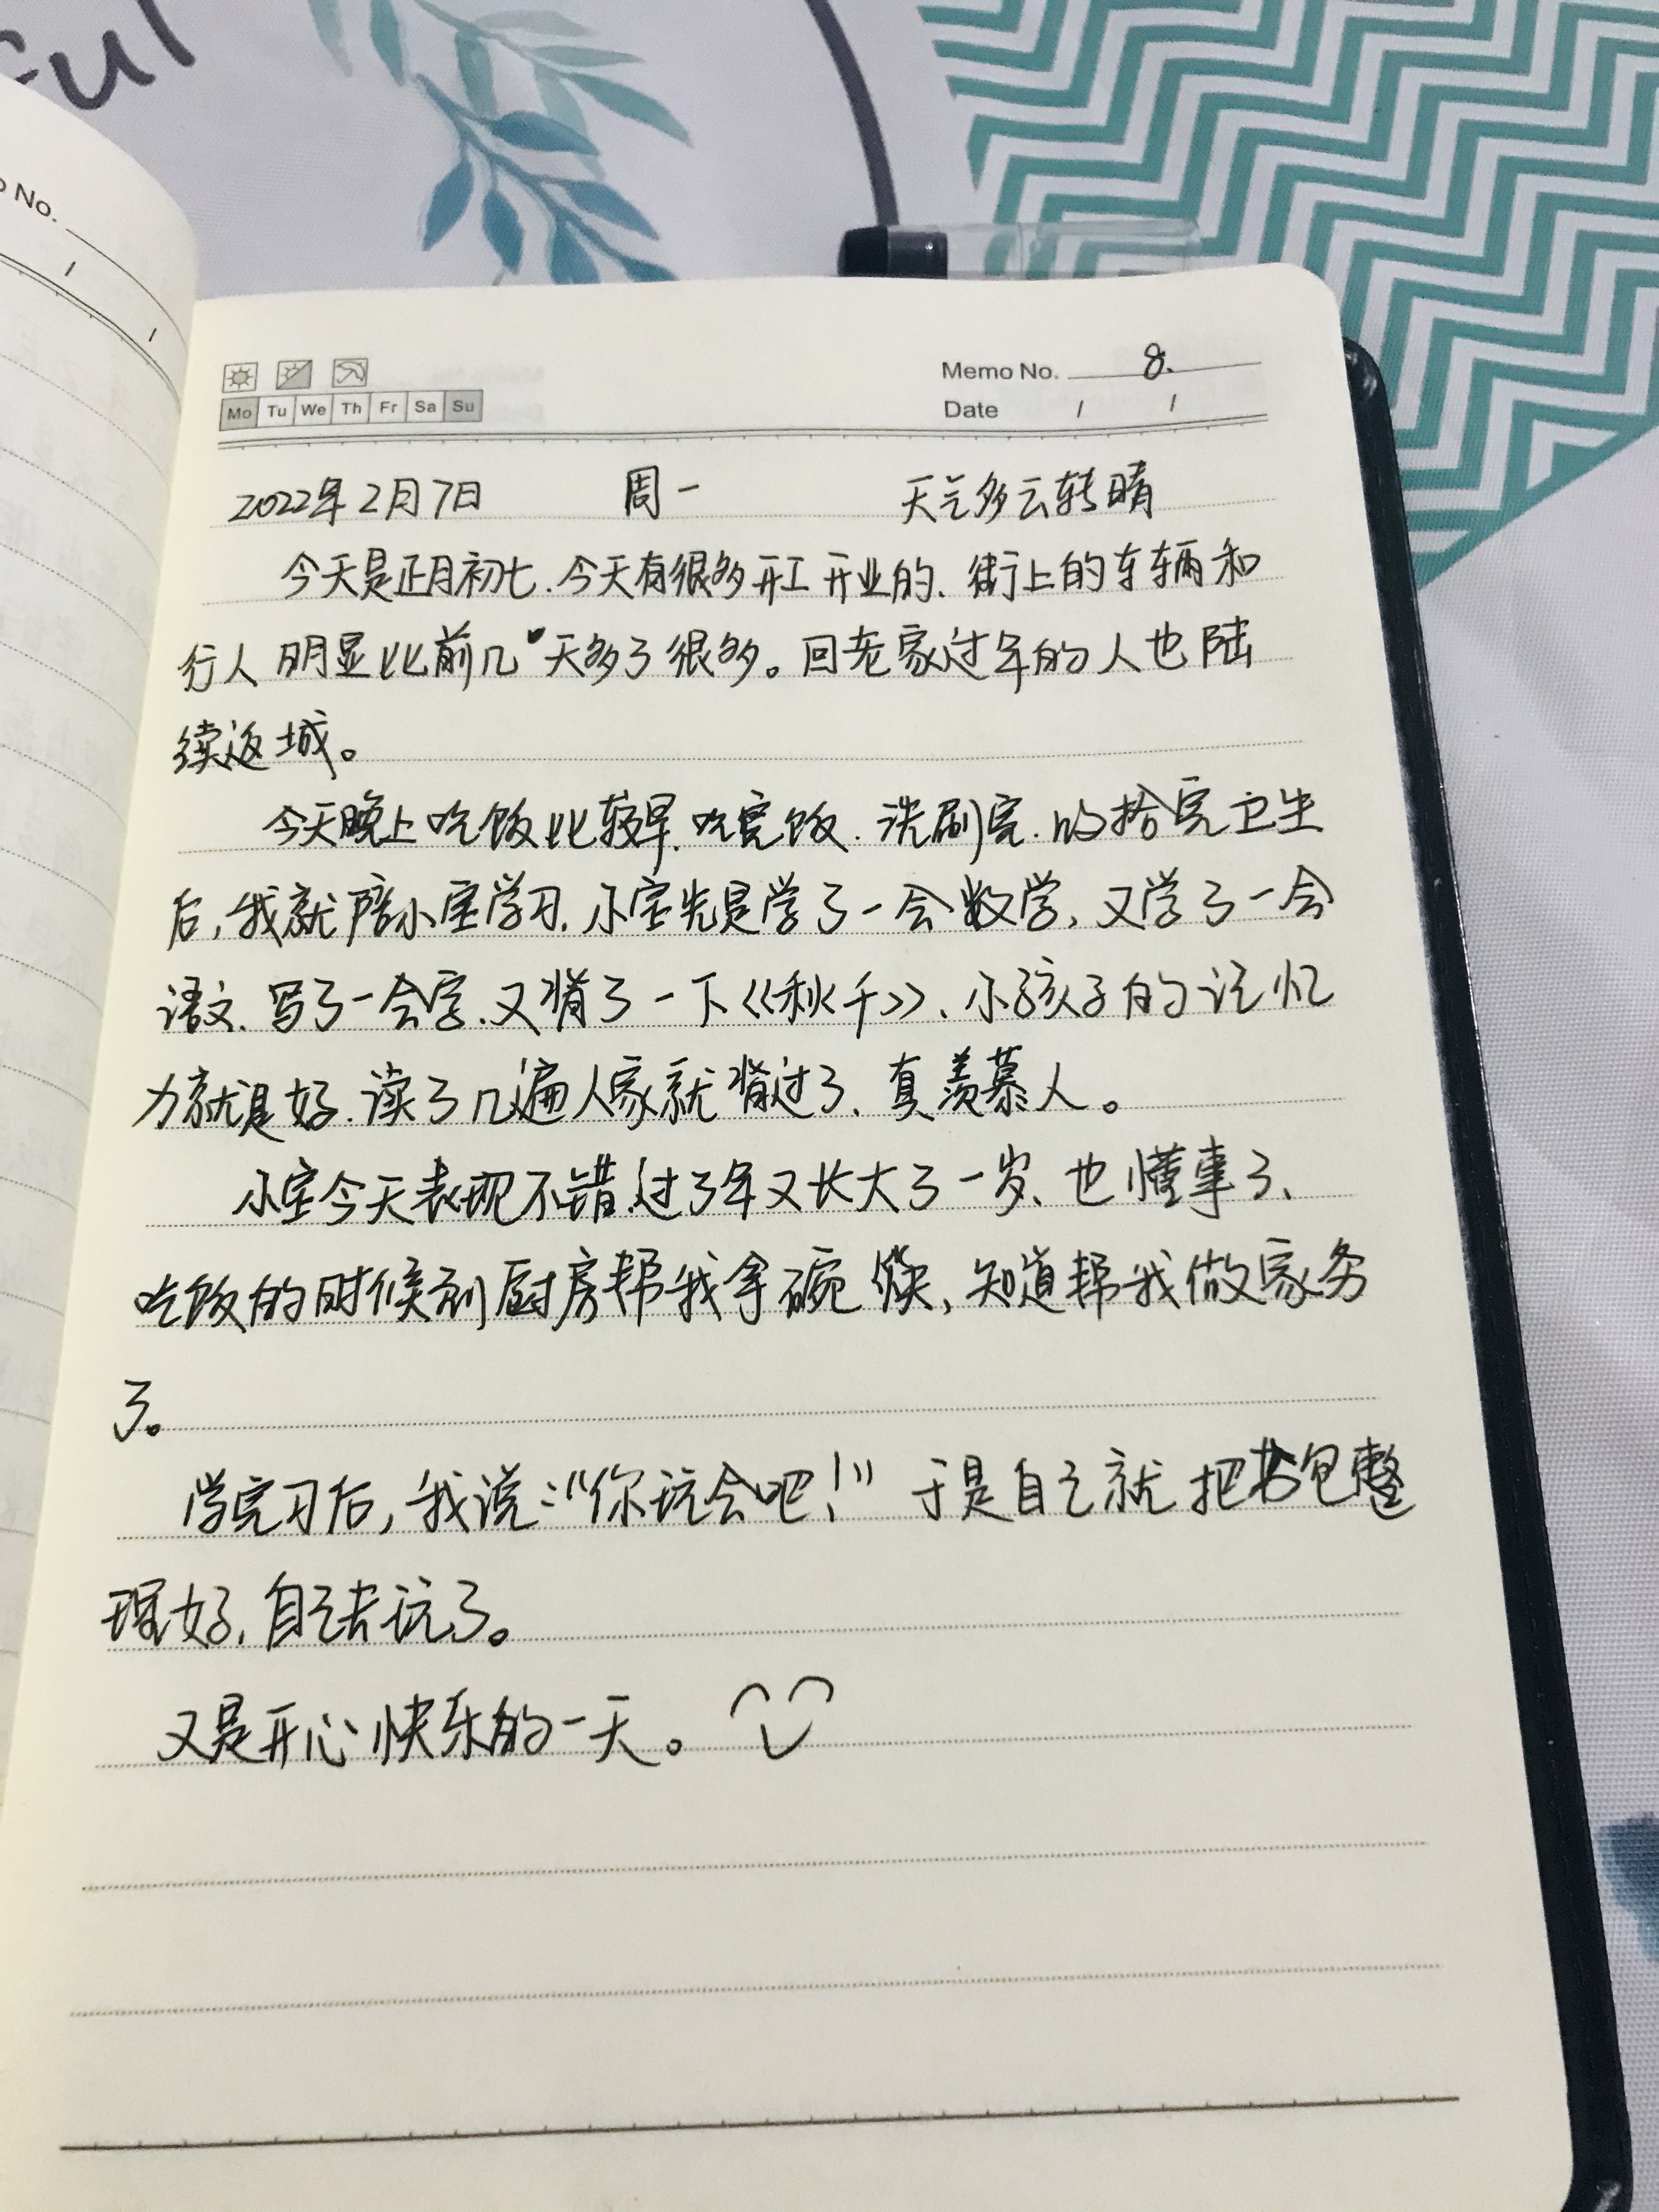 ful
o No.
Memo No. 8.
Mo Tu We Th Fr Sa Su
Date / /
2022年2月7日 周一 天气多云转晴
今天是正月初七.今天有很多开工开业的、街上的车辆和
行人明显比前几天多了很多。回老家过年的人也陆
续返城。
今天晚上吃饭比较早.吃完饭.洗刷完.收拾完卫生
后,我就陪小宝学习.小宝先是学了一会数学,又学了一会
语文.写了一会字.又背了一下《秋千》、小孩子的记忆
力就是好.读了几遍人家就背过了、真羡慕人。
小宝今天表现不错.过了年又长大了一岁、也懂事了、
吃饭的时候到厨房帮我拿碗筷,知道帮我做家务
了。
学完习后,我说:“你玩会吧!”于是自己就把书包整
理好,自己去玩了。
又是开心快乐的一天。